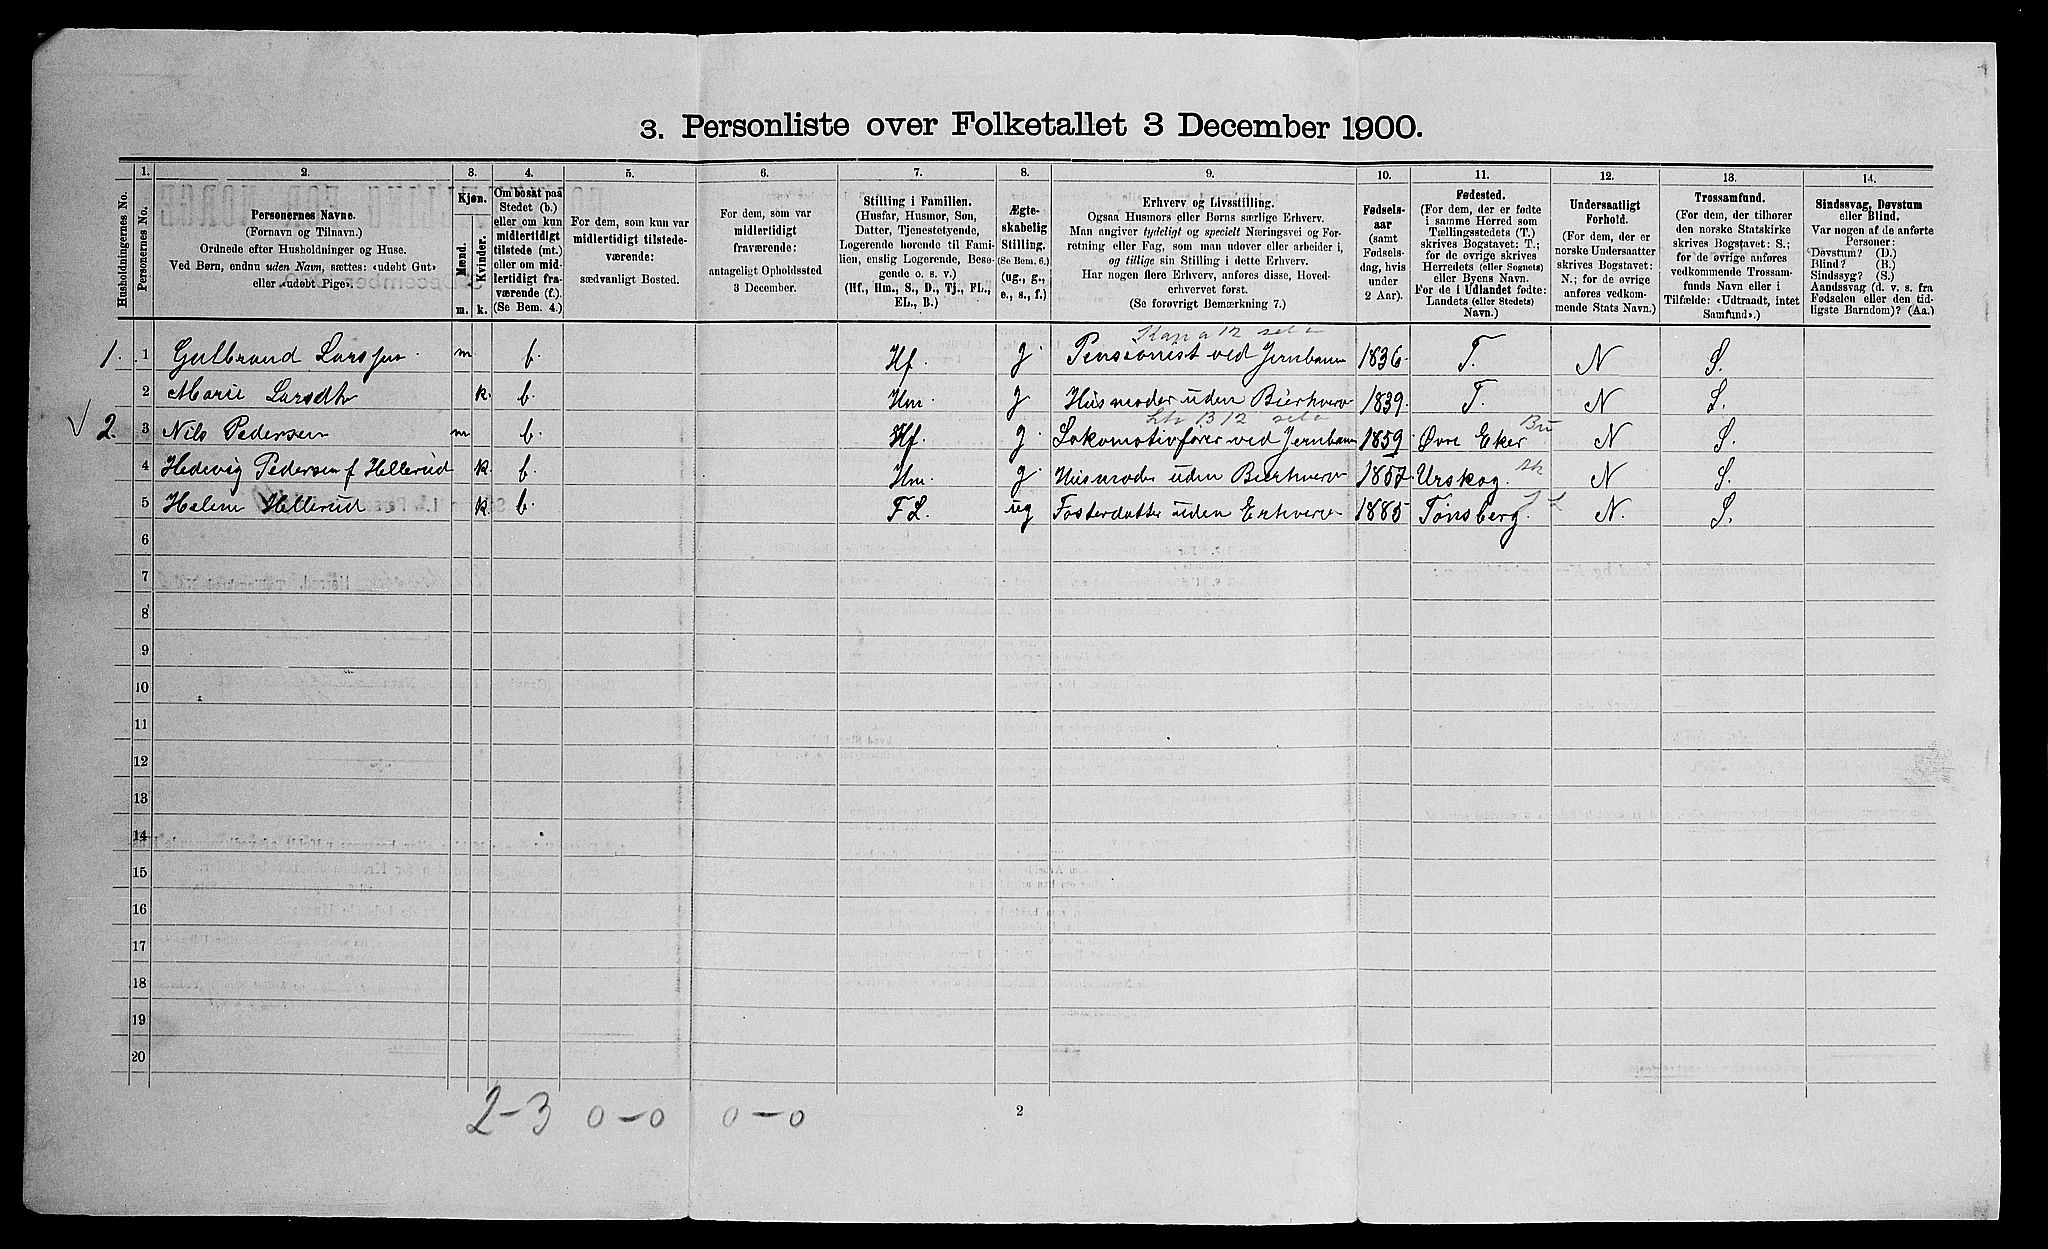 3. Personliste over Folketallet 3 December 1900.
Husholdningernes No.
1.
Personernes No.
2.
Personernes Navne.
(Fornavn og Tilnavn.)
Ordnede efter Husholdninger og Huse.
Ved Børn, endnu uden Navn, sættes: «udøbt Gut»
eller «udøbt Pige».
3.
Kjøn.
Mænd.
Kvinder.
m.
k.
4.
Om bosat paa
Stedet (b.)
eller om kun
midlertidigt
tilstede (mt.)
eller om mid-
lertidigt fra-
værende (f.)
(Se Bem. 4.)
5.
For dem, som kun var
midlertidigt tilstede-
værende:
sædvanligt Bosted.
6.
For dem, som var
midlertidigt
fraværende:
antageligt Opholdssted
3 December.
7.
Stilling i Familien.
(Husfar, Husmor, Søn,
Datter, Tjenestetyende,
Logerende hørende til Fami-
lien, enslig Logerende, Besø-
gende o. s. v.)
(Hf., Hm., S., D., Tj., FL.,
EL., B.)
8.
Ægte-
skabelig
Stilling.
(Se Bem. 6.)
(ug., g.,
e., s., f.)
9.
Erhverv og Livsstilling.
Ogsaa Husmors eller Børns særlige Erhverv.
Man angiver tydeligt og specielt Næringsvei og For-
retning eller Fag, som man udover eller arbeider i,
og tillige sin Stilling i dette Erhverv.
Har nogen flere Erhverv, anføres disse, Hoved-
erhvervet først.
(Se forøvrigt Bemærkning 7.)
10.
Fødsels-
aar
(samt
Fødsels-
dag, hvis
under
2 Aar).
11.
Fødested.
(For dem, der er fødte
i samme Herred som
Tællingsstedets (T.)
skrives Bogstavet: T.;
for de øvrige skrives
Herredets (eller Sognets)
eller Byens Navn.
For de i Udlandet fødte:
Landets (eller Stedets)
Navn.)
12.
Undersaatligt
Forhold.
(For dem, der er
norske Undersaatter
skrives Bogstavet:
N.; for de øvrige
anføres vedkom-
mende Stats Navn.)
13.
Trossamfund.
(For dem, der tilhører
den norske Statskirke
skrives Bogstavet: S.;
for de øvrige anføres
vedkommende Trossam-
funds Navn eller i
Tilfælde: «Udtraadt, intet
Samfund».)
14.
Sindssvag, Døvstum
eller Blind.
Var nogen af de anførte
Personer:
Døvstum? (D.)
Blind? (B.)
Sindssyg? (S.)
Aandssvag (d. v. s. fra
Fødselen eller den tid-
ligste Barndom)? (Aa.)
1. 1 Gulbrand Larssen m. b. Hf. g. Pensionist ved Jernbanen 1836. T. N S.
2 Marie Larsdtr k. b. Hm. g Husmoder uden Bierhverv 1839. T. N S.
2. 3 Nils Pedersen m b. Hf. g. Lokomotivfører ved Jernbanen 1859. Øvre Eker Bu N S.
4 Hedevig Pedersen f Hellerud k. b. Hm g. Husmoder uden Bierhverv 1857. Urskog. Ak N S.
5 Helene Hellerud k. b. F L. ug Fosterdatter uden Erhverv 1885 Tønsberg. N. S.
6
7
8
9
10
11
12
13
14
15
16
17
18
19
20
2-3 0-0 0-0
2